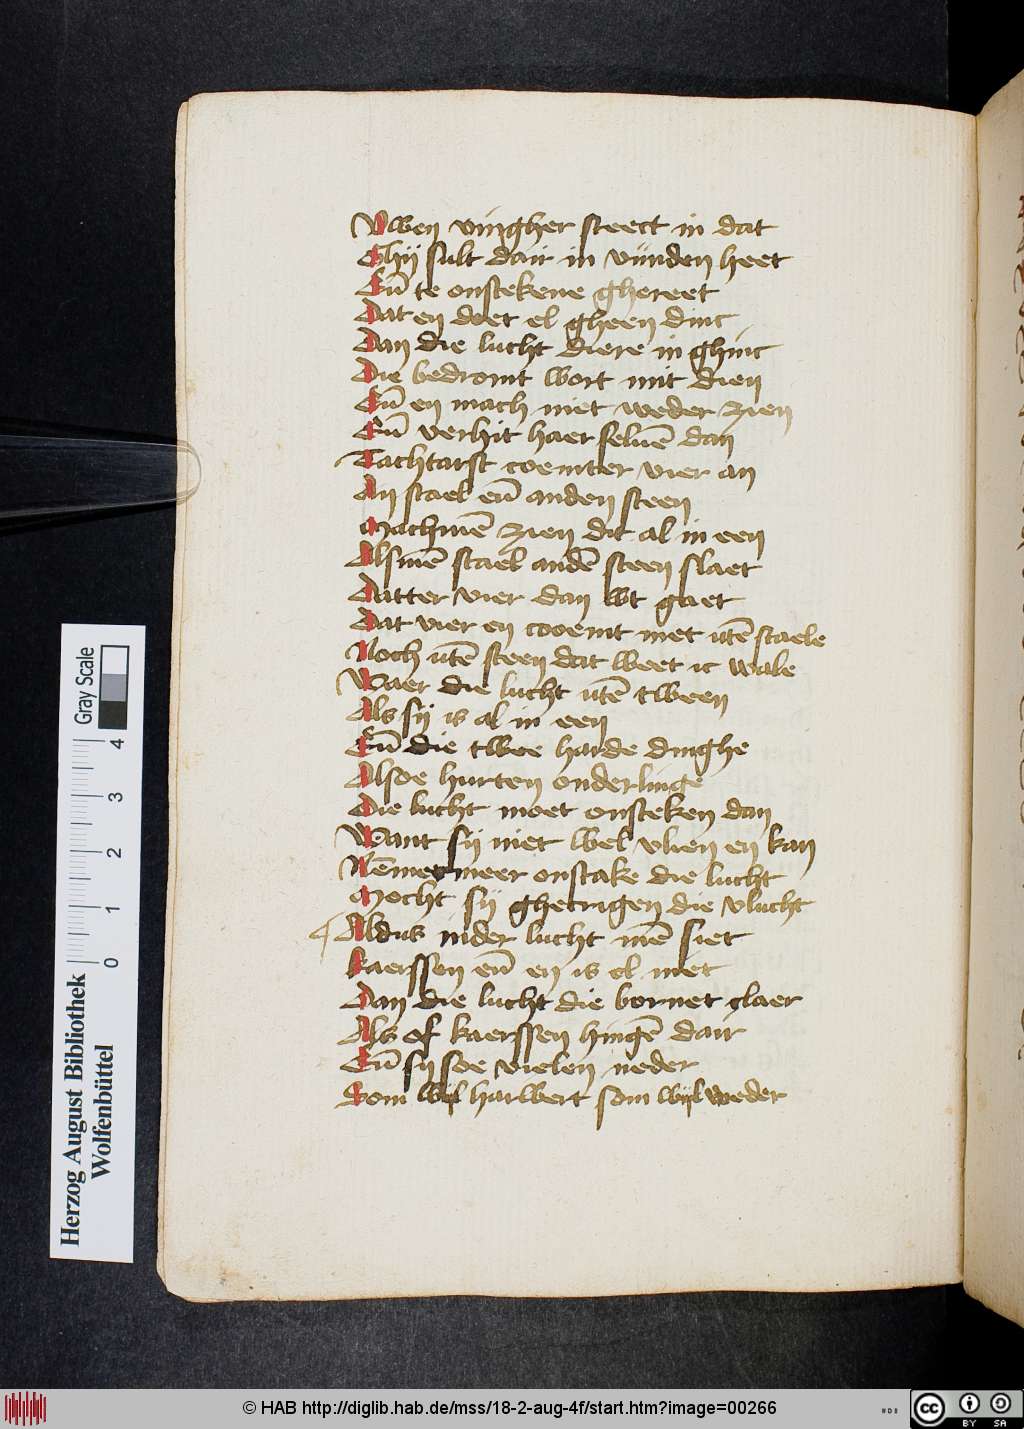 Uwen vingher steect in dat
Ghij sult dair in vünden heet
Eñ te onstekene ghereet
Dat en doet el gheen dinc
Dan die lucht diere in ghinc
Die bedromt wort mit dien
Eñ en mach niet weder zien
Eñ verhit haer seluē dan
Tachtarst coemter vier an
An stael eñ anden steen
Machmē zien dit al in een
Alsmē stael andē steen slaet
Datter vier dan wt gaet
Dat vier en cooemt niet utē staele
Noch utē steen dat weet ic wale
Maer die lucht utē tween
Als sij is al in een
Eñ die twee harde dinghe
Alsoe hurten onderlinge
Die lucht moet onsteken dan
Want sij niet wel vlien en kan
Nēmermeer onstake die lucht
Mocht sij ghecrigen die vlucht
Aldus inder lucht mē siet
Kaerssen eñ en is el niet
Dan die lucht die bornet claer
Als of kaerssen hingē dair
Eñ sij soe vielen neder
Som wijl harwert som wijl weder
Herzog August Bibliothek
Wolfenbüttel
Gray Scale
0 1 2 3 4
© HAB http://diglib.hab.de/mss/18-2-aug-4f/start.htm?image=00266
cc BY SA